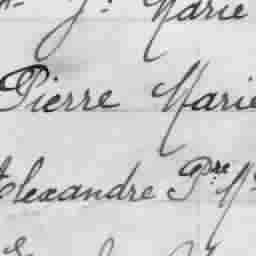 J. Marie
Pierre Marie
Alexandre Pre M